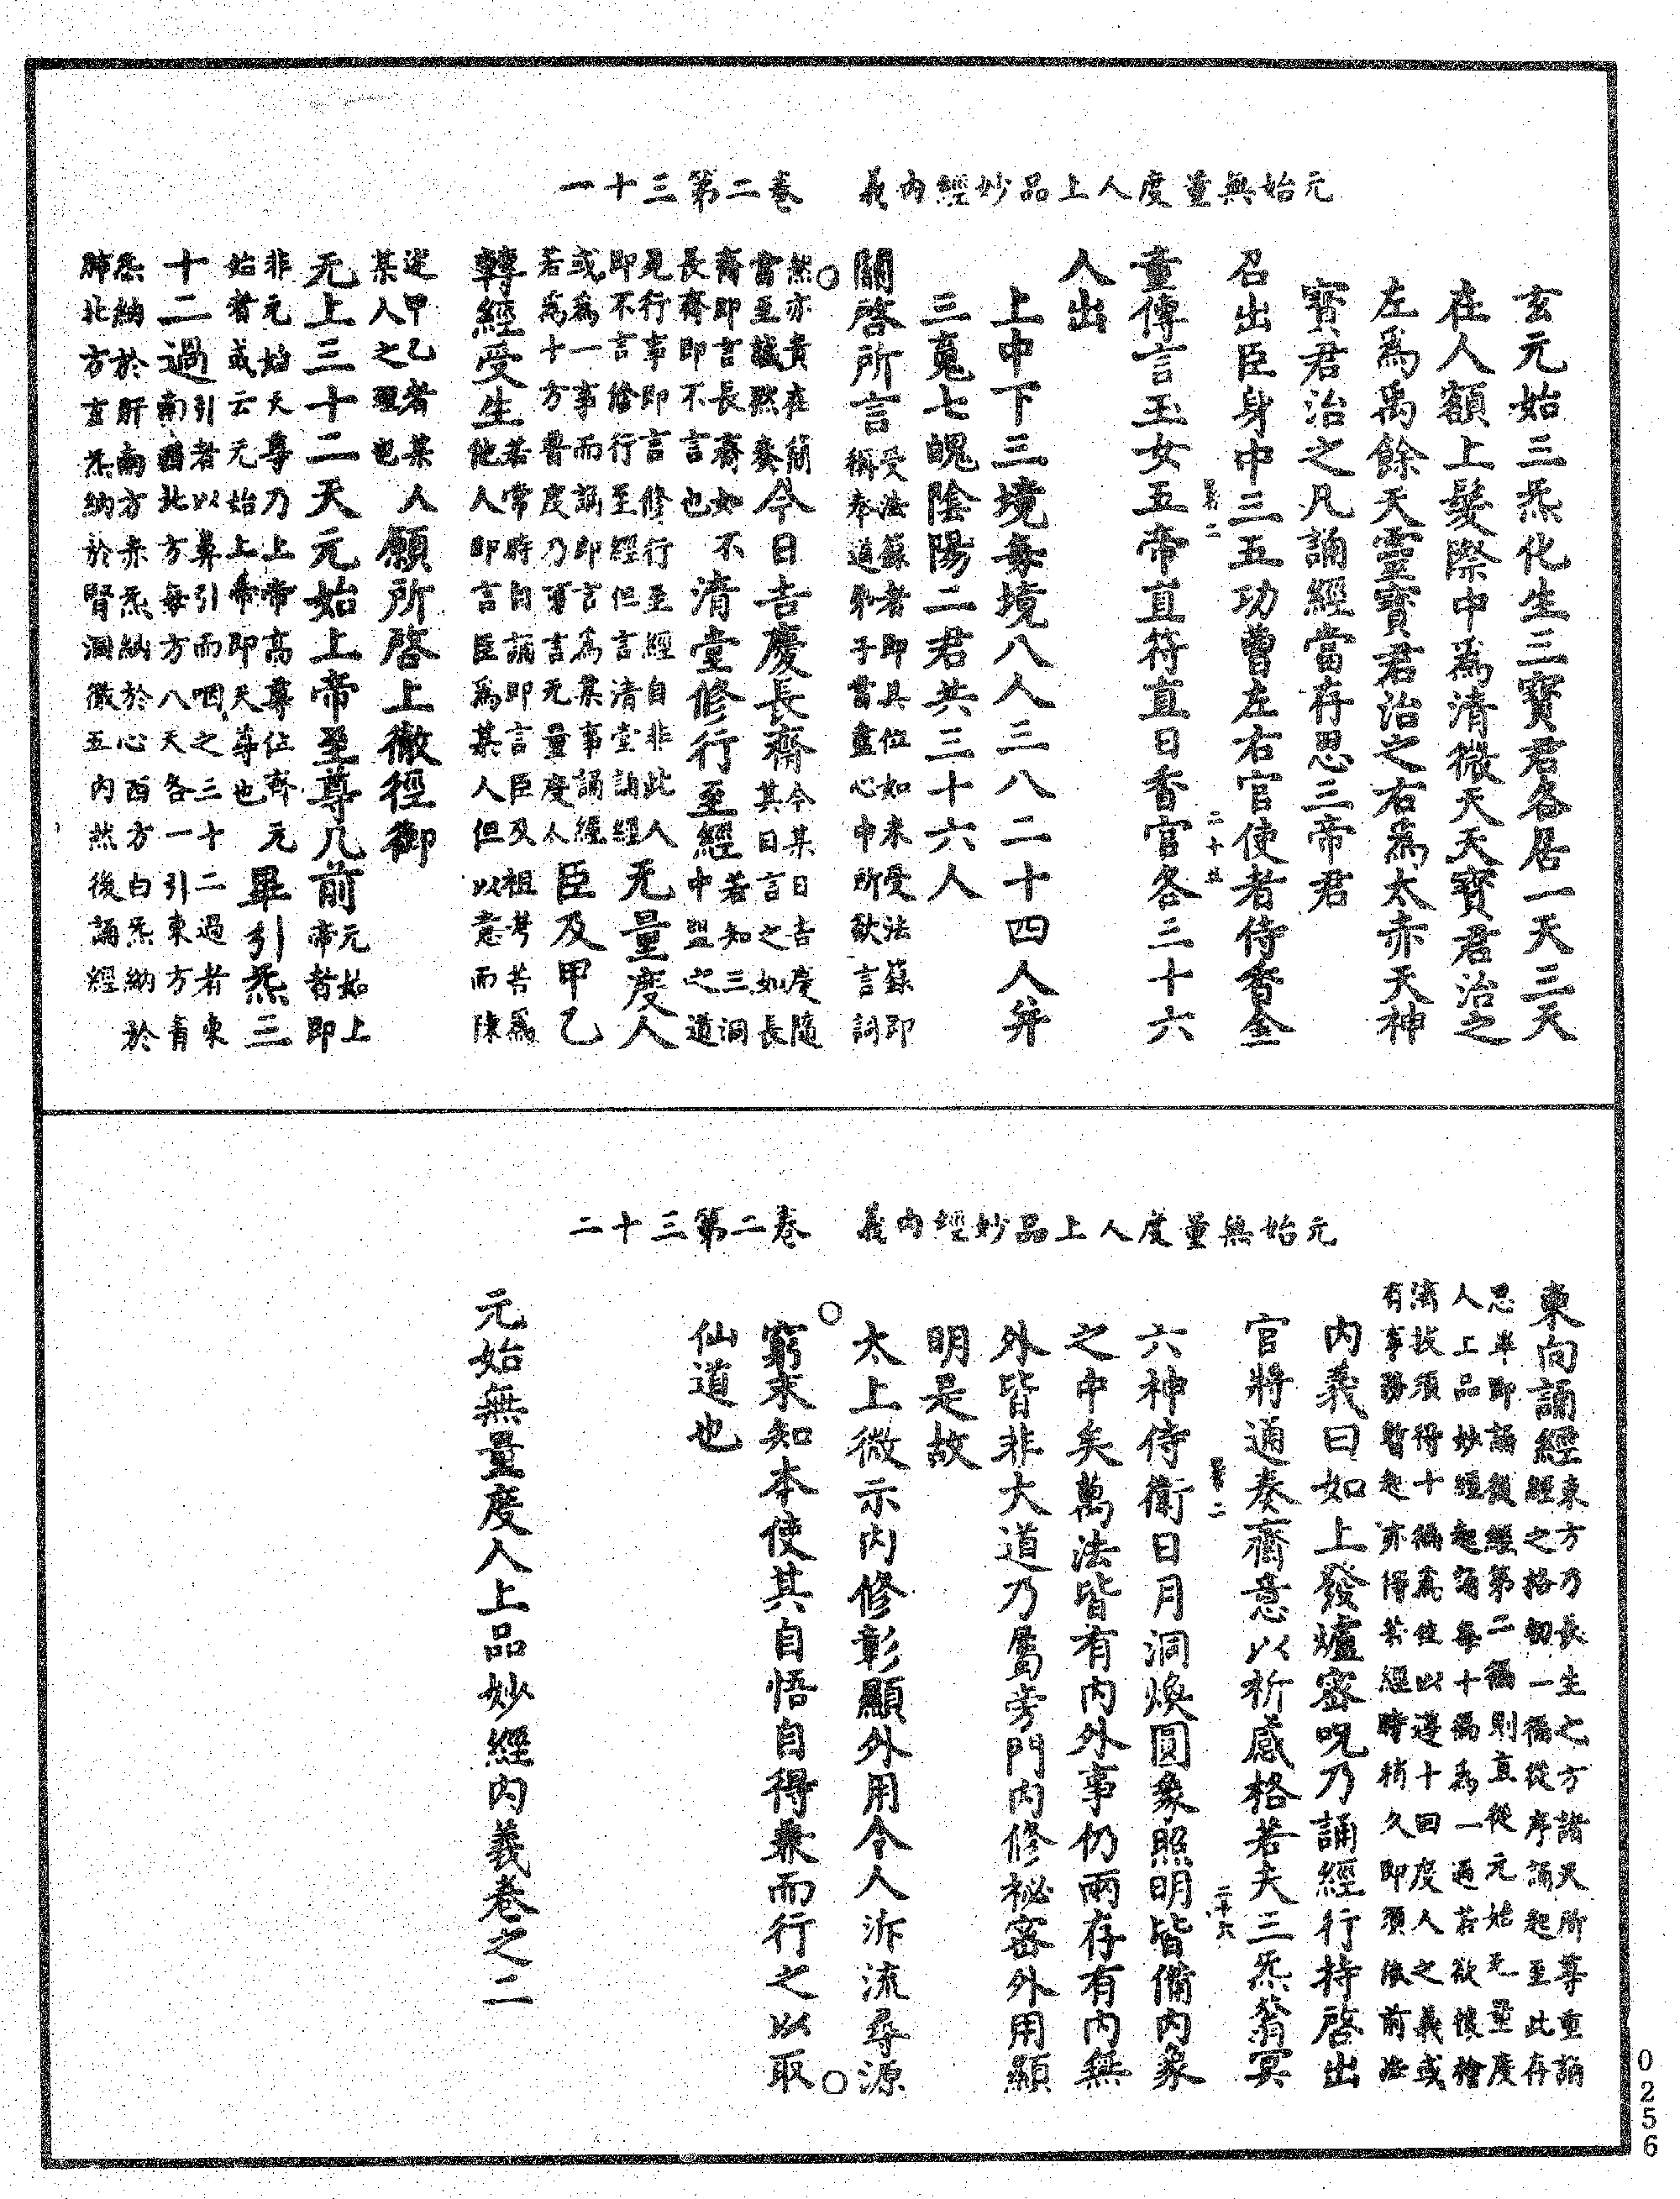 元始無量度人上品妙經內義　卷二第三十一
玄元始三炁化生三寶君各居一天三天
在人額上髮際中為清微天天寶君治之
左為禹餘天靈寶君治之右為太赤天神
寶君治之凡誦經當存思三帝君
召出臣身中三五功曹左右官使者侍香金
童傳言玉女五帝直符直日香官各三十六
人出
上中下三境每境八人三八二十四人并
三魂七魄陰陽二君共三十六人
關啓所言受法籙者即具位如未受法籙即
稱奉道弟子當盡心中所欲言詞
然亦貴在簡
當至誠默奏今日吉慶長齋今某日吉慶隨
其日言之如長
齋即言長齋如不
長齋即不言也清堂修行至經若知三洞
中盟之道
是行事即言修行至經自非此人
即不言餘行至經但言清堂誦經无量度人
或為一事而誦即言為某事誦經
若為十方普度乃可言无量度人臣及甲乙
若常時自誦即言臣及祖考若為
他人即言臣為某人但以意而陳
轉經受生
述甲乙者某
某人之理也人願所啓上徹徑御
无上三十二天元始上帝至尊几前元始上
帝者即
非元始天尊乃上帝高尊位齊元
始者或云元始上帝即天尊也畢引炁三
十二過引者以鼻引而咽之三十二過者東
南西北方每方八天各一引東方青
炁納於肝南方赤炁納於心西方白炁納於
肺北方玄炁納於腎潤徹五內然後誦經
元始無量度人上品妙經內義　卷二第三十二
東向誦經東方乃長生之方諸天所尊重誦
經之格初一徧從序誦起至此存
思畢即誦後經第二徧則直從元始无量度
人上品妙經起誦每十徧為一過若欲懷襘
濟拔須得十徧為位以遵十回度人之義或
有事務暫起亦得若經時稍久即須依前法
內義曰如上發爐密呪乃誦經行持啓出
官將通奏齋意以祈感格若夫三炁蓊冥
六神侍衛日月洞煥圓象照明皆備內象
之中矣萬法皆有內外事仍兩存有內無
外皆非大道乃屬旁門內修祕密外用顯
明是故
太上微示內修彰顯外用令人泝流尋源
窮末知本使其自悟自得兼而行之以取
仙道也
元始無量度人上品妙經內義卷之二
0256